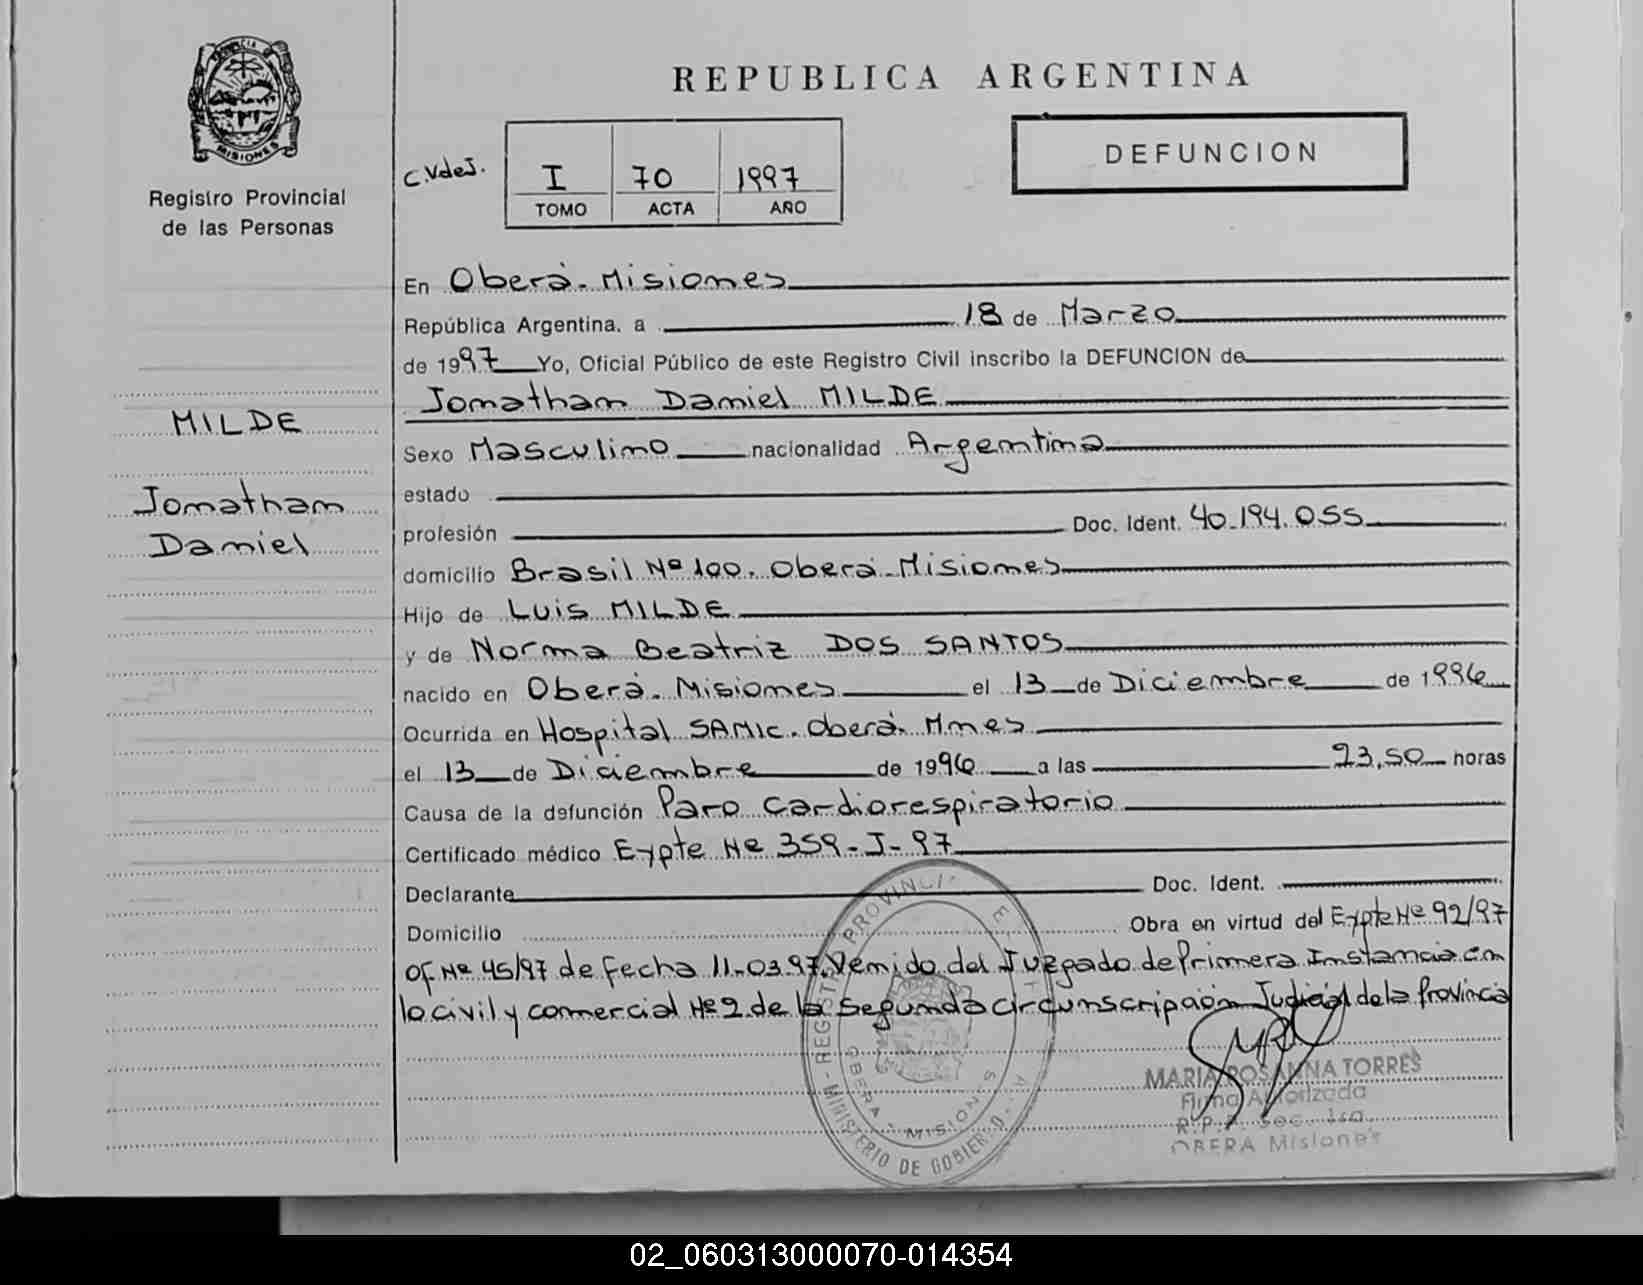 REPUBLICA ARGENTINA
PROVINCIA DE
MISIONES
Registro Provincial
de las Personas
C.VdeJ.
I 70 1997
TOMO ACTA AÑO
DEFUNCION
MILDE
Jonathan
Daniel
En Oberá - Misiones
República Argentina, a 18 de Marzo
de 1997 Yo, Oficial Público de este Registro Civil inscribo la DEFUNCION de
Jonathan Daniel MILDE
Sexo Masculino nacionalidad Argentina
estado
profesión Doc. Ident. 40.194.055
domicilio Brasil Nº 100. Oberá - Misiones
Hijo de Luis MILDE
y de Norma Beatriz DOS SANTOS
nacido en Oberá. Misiones el 13 de Diciembre de 1996
Ocurrida en Hospital SAMIC. Oberá. Mnes
el 13 de Diciembre de 1996 a las 23,50 horas
Causa de la defunción Paro cardiorespiratorio
Certificado médico Expte Nº 359-J-97
Declarante Doc. Ident.
Domicilio Obra en virtud del Expte Nº 92/97
Of. Nº 45/97 de fecha 11-03-97. Venido del Juzgado de Primera Instancia en
lo civil y comercial Nº 2 de la Segunda circunscripción Judicial de la Provincia
REGISTRO PROVINCIAL DE
MINISTERIO DE GOBIERNO
OBERA - MISIONES
MARIA ROSANNA TORRES
Firma Autorizada
R.P.P. Sec. 1ra.
OBERA Misiones
02_060313000070-014354